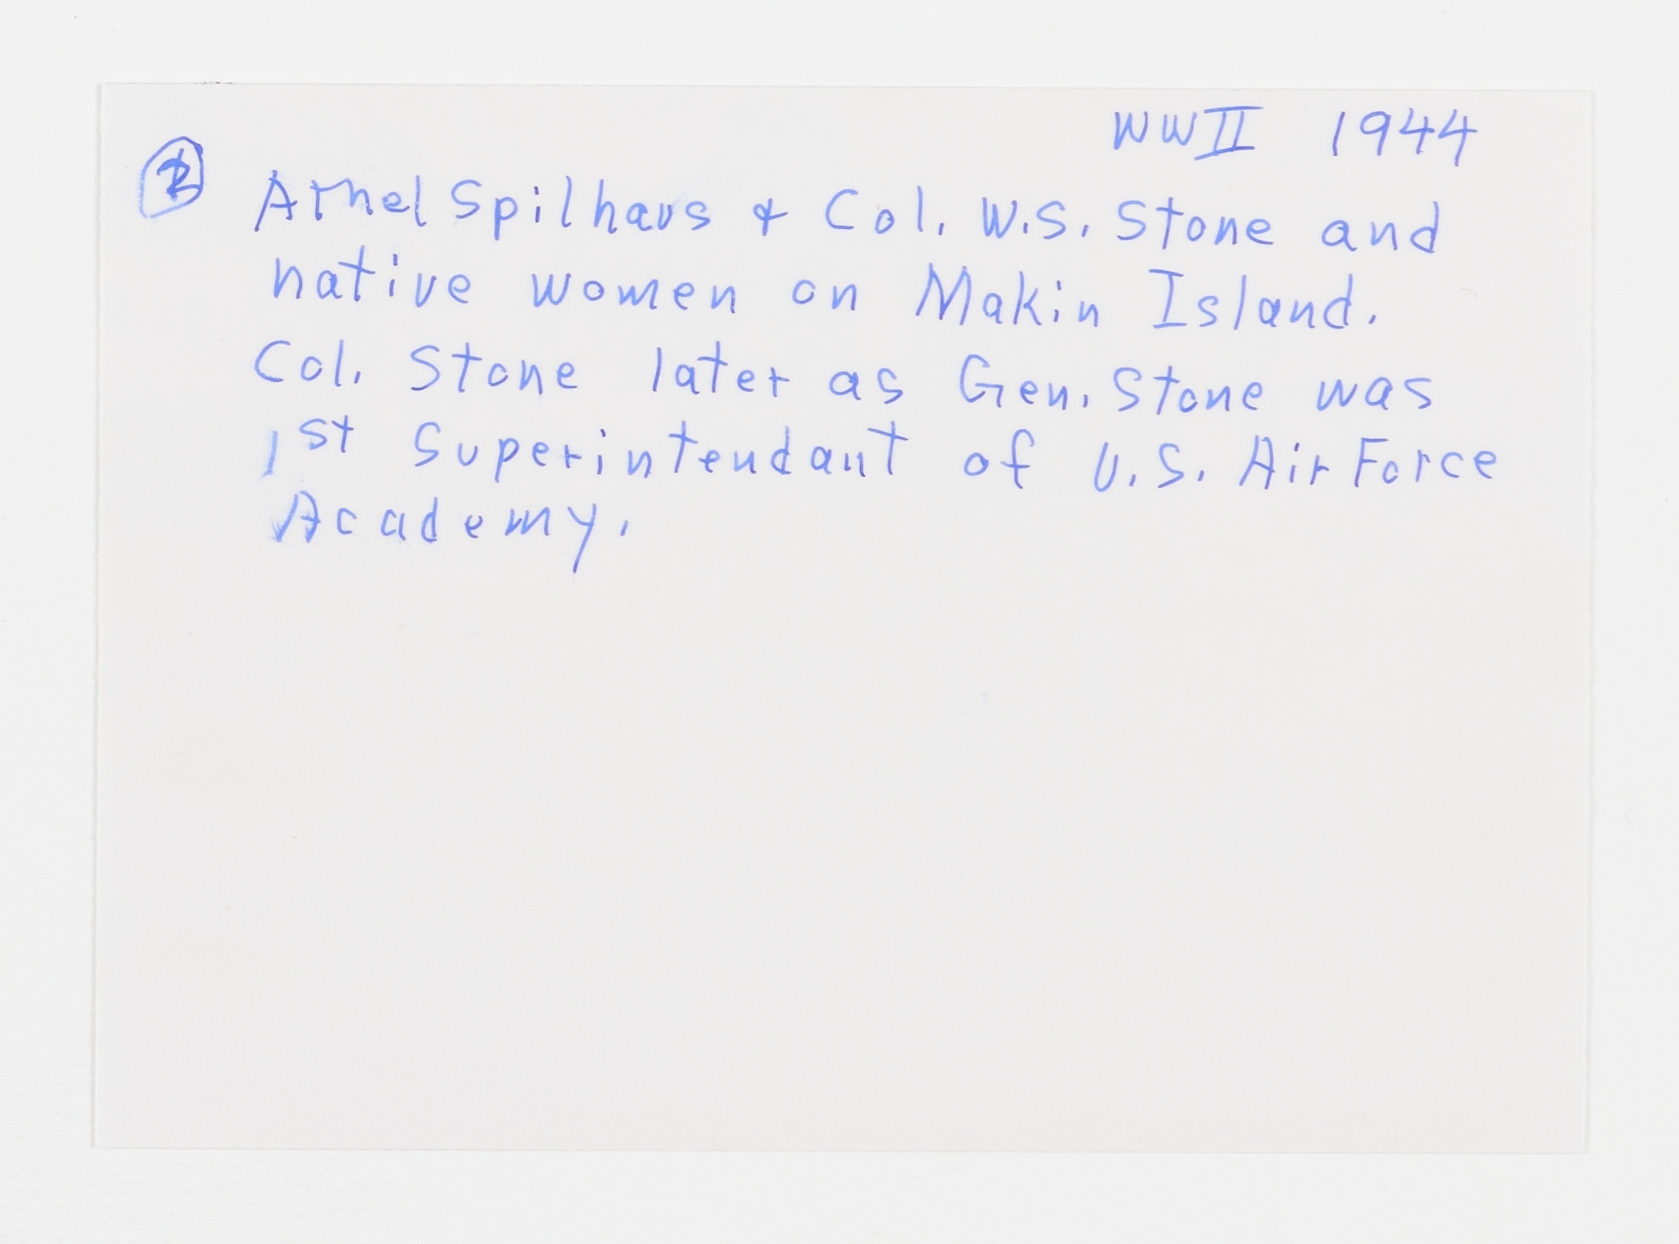 WWII 1944
② Athel Spilhaus & Col. W.S. Stone and
native women on Makin Island.
Col. Stone later as Gen. Stone was
1st Superintendant of U.S. Air Force
Academy.